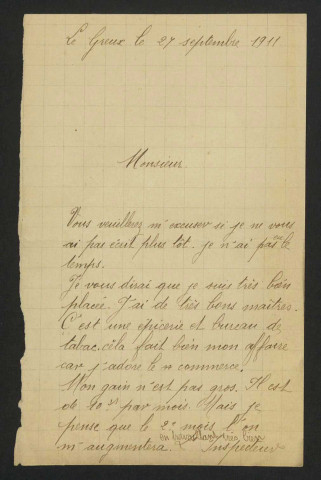 Le Greux le 27 septembre 1911
Monsieur
Vous veuillerez m'excuser si je ne vous
ai pas écrit plus tôt. je n'ai pas eu le
temps.
Je vous dirai que je suis très bien
placée. J'ai de très bons maîtres.
C'est une épicerie et bureau de
tabac, cela fait bien mon affaire
car j'adore le commerce.
Mon gain n'est pas gros. Il est
de 10 par mois. Mais je
pense que le 2e mois l'on
en travaillant très bien
m'augmentera. Inspecteur